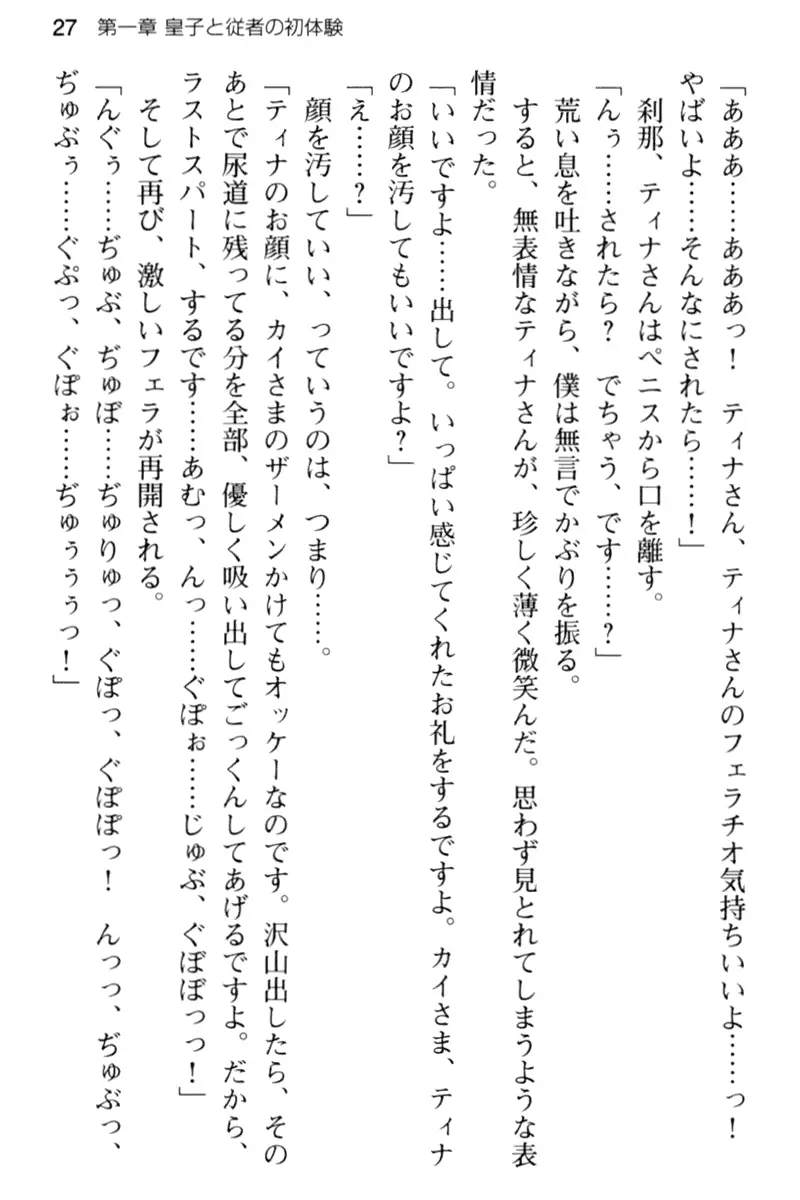 27 第一章 皇子と従者の初体験
「あああ……あああっ！　ティナさん、ティナさんのフェラチオ気持ちいいよ……っ！
やばいよ……そんなにされたら……！」
刹那、ティナさんはペニスから口を離す。
「んぅ……されたら？　でちゃう、です……？」
荒い息を吐きながら、僕は無言でかぶりを振る。
すると、無表情なティナさんが、珍しく薄く微笑んだ。思わず見とれてしまうような表
情だった。
「いいですよ……出して。いっぱい感じてくれたお礼をするですよ。カイさま、ティナ
のお顔を汚してもいいですよ？」
「え……？」
顔を汚していい、っていうのは、つまり……。
「ティナのお顔に、カイさまのザーメンかけてもオッケーなのです。沢山出したら、その
あとで尿道に残ってる分を全部、優しく吸い出してごっくんしてあげるですよ。だから、
ラストスパート、するです……あむっ、んっ……ぐぽぉ……じゅぶ、ぐぼぼっっ！」
そして再び、激しいフェラが再開される。
「んぐぅ……ぢゅぶ、ぢゅぼ……ぢゅりゅっ、ぐぽっ、ぐぽぽっ！　んっっ、ぢゅぶっ、
ぢゅぶぅ……ぐぷっ、ぐぽぉ……ぢゅぅぅぅっ！」